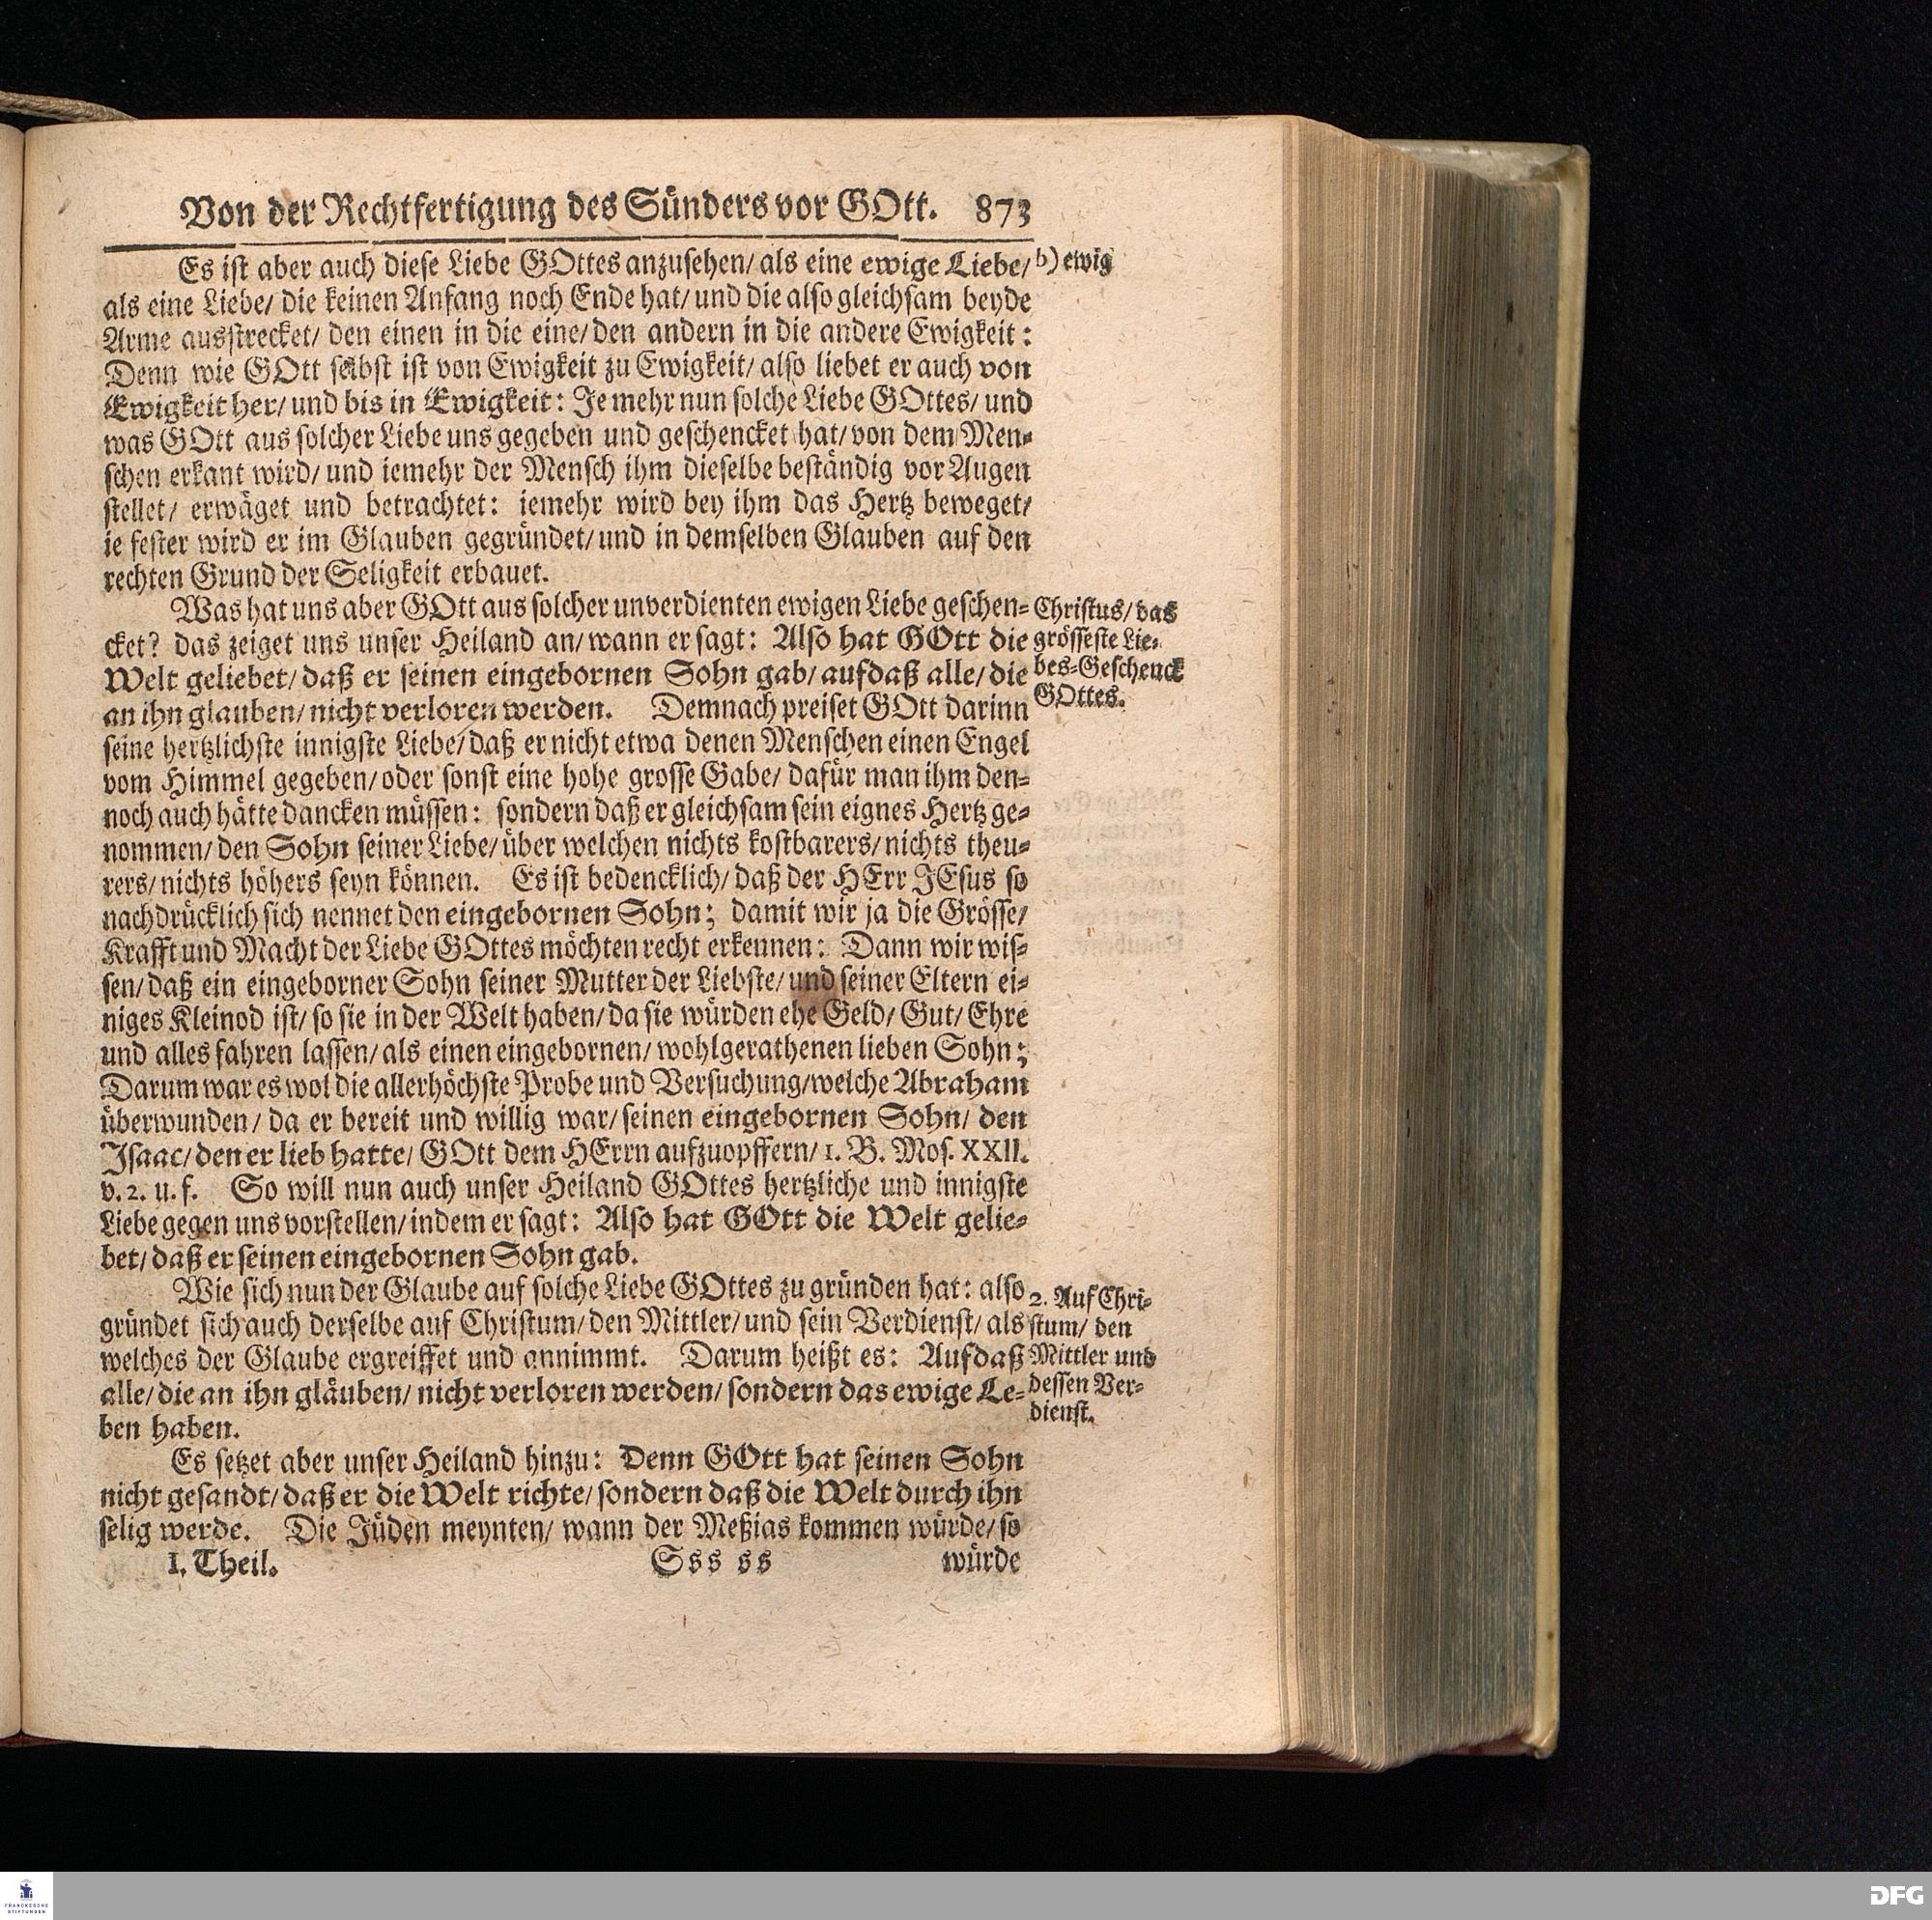 Von der Rechtfertigung des Sünders vor GOtt. 873
Es ist aber auch diese Liebe GOttes anzusehen/ als eine ewige Liebe/
als eine Liebe/ die keinen Anfang noch Ende hat/ und die also gleichsam beyde
Arme ausstrecket/ den einen in die eine/ den andern in die andere Ewigkeit:
Denn wie GOtt selbst ist von Ewigkeit zu Ewigkeit/ also liebet er auch von
Ewigkeit her/ und bis in Ewigkeit: Je mehr nun solche Liebe GOttes/ und
was GOtt aus solcher Liebe uns gegeben und geschencket hat/ von dem Men-
schen erkant wird/ und iemehr der Mensch ihm dieselbe beständig vor Augen
stellet/ erwäget und betrachtet: iemehr wird bey ihm das Hertz beweget/
ie fester wird er im Glauben gegründet/ und in demselben Glauben auf den
rechten Grund der Seligkeit erbauet.
b) ewig
Was hat uns aber GOtt aus solcher unverdienten ewigen Liebe geschen-
cket? das zeiget uns unser Heiland an/ wann er sagt: Also hat GOtt die
Welt geliebet/ daß er seinen eingebornen Sohn gab/ aufdaß alle/ die
an ihn glauben/ nicht verloren werden. Demnach preiset GOtt darinn
seine hertzlichste innigste Liebe/ daß er nicht etwa denen Menschen einen Engel
vom Himmel gegeben/ oder sonst eine hohe grosse Gabe/ dafür man ihm den-
noch auch hätte dancken müssen: sondern daß er gleichsam sein eignes Hertz ge-
nommen/ den Sohn seiner Liebe/ über welchen nichts kostbarers/ nichts theu-
rers/ nichts höhers seyn können. Es ist bedencklich/ daß der HErr JEsus so
nachdrücklich sich nennet den eingebornen Sohn; damit wir ja die Grösse/
Krafft und Macht der Liebe GOttes möchten recht erkennen: Dann wir wis-
sen/ daß ein eingeborner Sohn seiner Mutter der Liebste/ und seiner Eltern ei-
niges Kleinod ist/ so sie in der Welt haben/ da sie würden ehe Geld/ Gut/ Ehre
und alles fahren lassen/ als einen eingebornen/ wohlgerathenen lieben Sohn;
Darum war es wol die allerhöchste Probe und Versuchung/ welche Abraham
überwunden/ da er bereit und willig war/ seinen eingebornen Sohn/ den
Isaac/ den er lieb hatte/ GOtt dem HErrn aufzuopffern/ 1. B. Mos. XXII.
v. 2. u. f. So will nun auch unser Heiland GOttes hertzliche und innigste
Liebe gegen uns vorstellen/ indem er sagt: Also hat GOtt die Welt gelie-
bet/ daß er seinen eingebornen Sohn gab.
Christus/ das
grösseste Lie-
bes-Geschenck
GOttes.
Wie sich nun der Glaube auf solche Liebe GOttes zu gründen hat: also
gründet sich auch derselbe auf Christum/ den Mittler/ und sein Verdienst/ als
welches der Glaube ergreiffet und annimmt. Darum heißt es: Aufdaß
alle/ die an ihn gläuben/ nicht verloren werden/ sondern das ewige Le-
ben haben.
2. Auf Chri-
stum/ den
Mittler und
dessen Ver-
dienst.
Es setzet aber unser Heiland hinzu: Denn GOtt hat seinen Sohn
nicht gesandt/ daß er die Welt richte/ sondern daß die Welt durch ihn
selig werde. Die Jüden meynten/ wann der Meßias kommen würde/ so
I. Theil. Sss ss würde
FRANCKESCHE
STIFTUNGEN
DFG